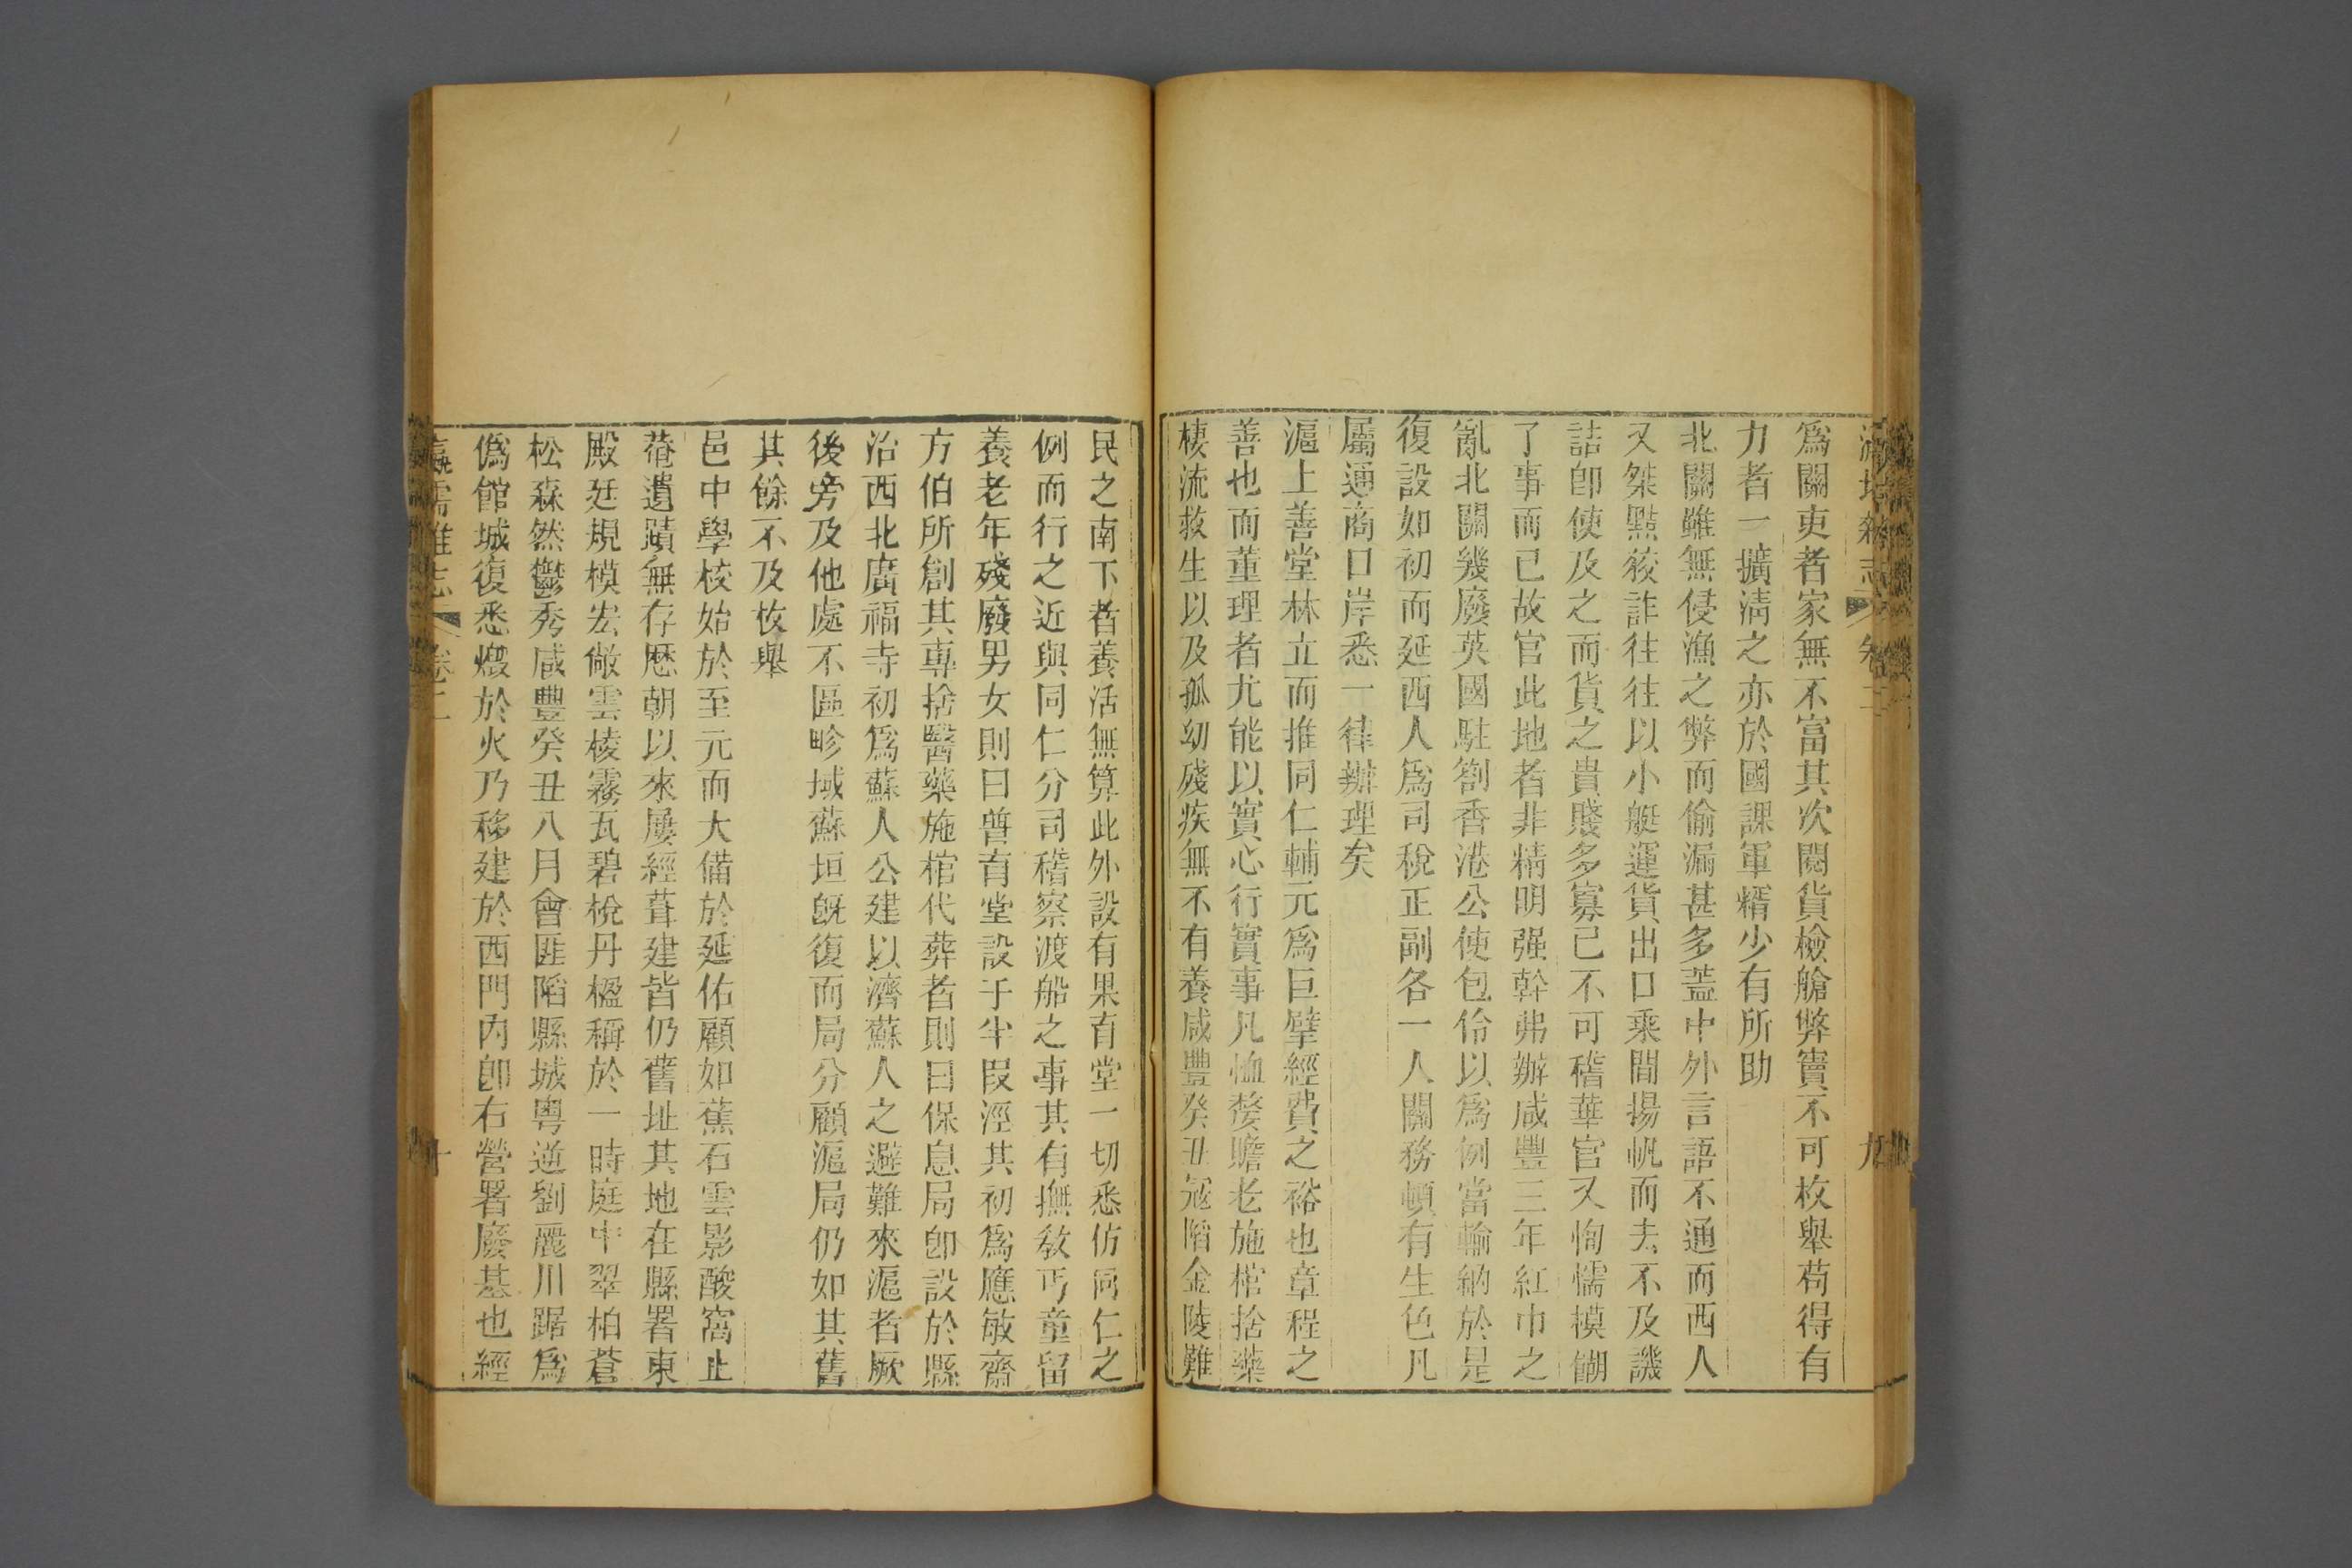 爲關吏者家無不富其次閱貨檢艙弊竇不可枚舉苟得有
力者一擴淸之亦於國課軍糈少有所助
北關雖無侵漁之弊而偷漏甚多蓋中外言語不通而西人
又桀黠狡詐往往以小艇運貨出口乘間揚帆而去不及譏
詰卽使及之而貨之貴賤多寡已不可稽華官又恂懦模餬
了事而已故官此地者非精明强幹弗辦咸豐三年紅巾之
亂北關幾廢英國駐劄香港公使包伶以爲例當輸納於是
復設如初而延西人爲司稅正副各一人關務頓有生色凡
屬通商口岸悉一律辦理矣
滬上善堂林立而推同仁輔元爲巨擘經費之裕也章程之
善也而董理者尤能以實心行實事凡恤嫠贍老施棺捨藥
棲流救生以及孤幼殘疾無不有養咸豐癸丑寇陷金陵難
民之南下者養活無算此外設有果育堂一切悉仿同仁之
例而行之近與同仁分司稽察渡船之事其有撫敎丐童留
養老年殘廢男女則曰普育堂設于半段涇其初爲應敏齋
方伯所創其專捨醫藥施棺代葬者則曰保息局卽設於縣
治西北廣福寺初爲蘇人公建以濟蘇人之避難來滬者厥
後旁及他處不區畛域蘇垣旣復而局分顧滬局仍如其舊
其餘不及枚舉
邑中學校始於至元而大備於延佑顧如蕉石雲影酸窩止
菴遺蹟無存歷朝以來屢經葺建皆仍舊址其地在縣署東
殿廷規模宏敞雲棱霧瓦碧梲丹楹稱於一時庭中翠柏蒼
松森然鬱秀咸豐癸丑八月會匪陷縣城粵逆劉麗川踞爲
僞館城復悉燬於火乃移建於西門內卽右營署廢基也經
瀛壖雜志 卷二 十